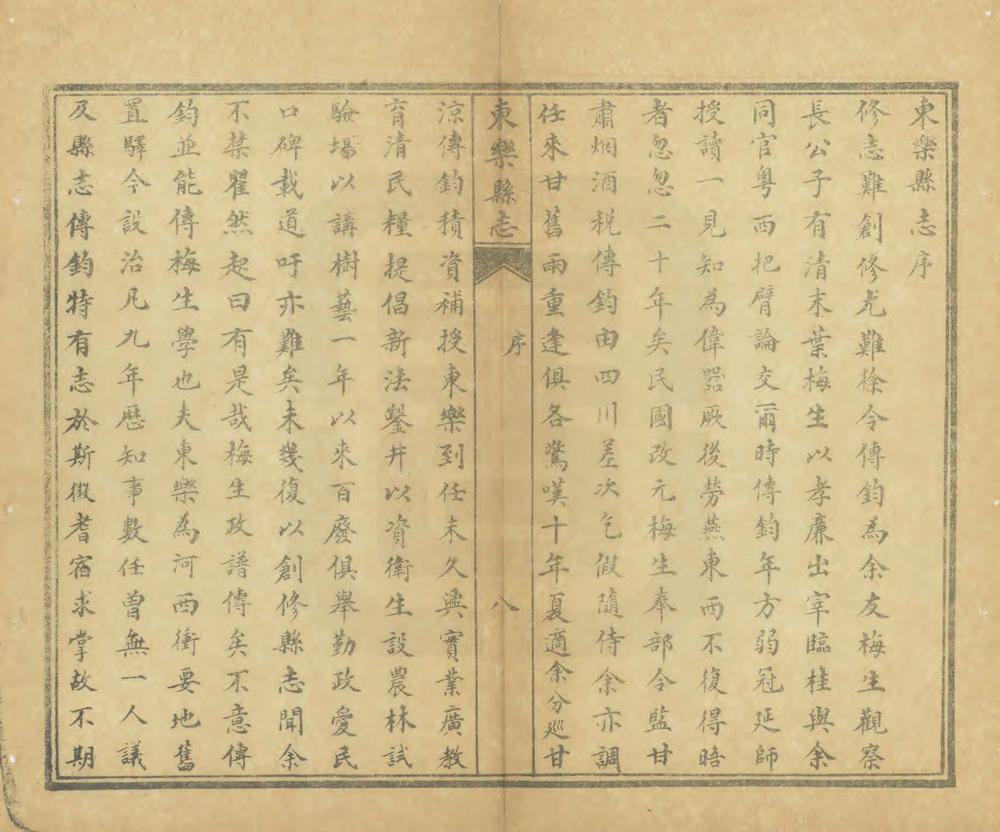 東樂縣志序
修志難創修尤難徐令傳鈞為余友梅生觀察
長公子有清末葉梅生以孝廉出宰臨桂與余
同官粵西把臂論交爾時傳鈞年方弱冠延師
授讀一見知為偉器厥後勞燕東西不復得晤
者忽忽二十年矣民國改元梅生奉部令監甘
肅烟酒稅傳鈞由四川差次乞假隨侍余亦調
任來甘舊雨重逢俱各驚嘆十年夏適余分巡甘
東樂縣志
序
八
涼傳鈞積資補授東樂到任未久興實業廣教
育清民糧提倡新法鑿井以資衛生設農林試
驗場以講樹藝一年以來百廢俱舉勤政愛民
口碑載道吁亦難矣未幾復以創修縣志聞余
不禁瞿然起曰有是哉梅生政譜傳矣不意傳
鈞並能傳梅生學也夫東樂為河西衝要地舊
置驛今設治凡九年歷知事數任曾無一人議
及縣志傳鈞特有志於斯徵耆宿求掌故不期